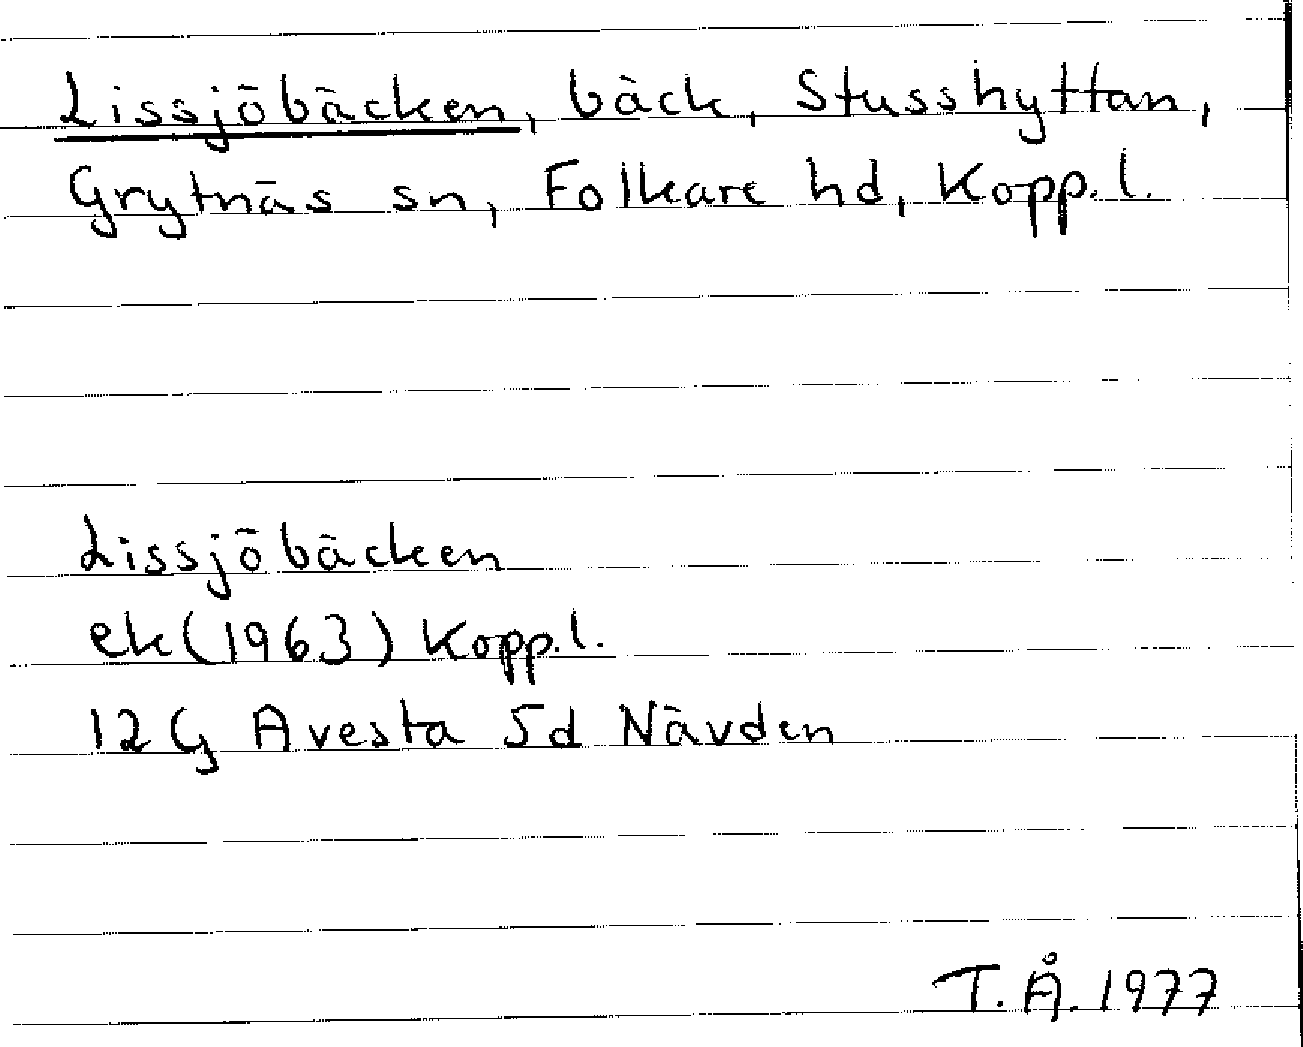 Lissjöbäcken, bäck, Stusshyttan,
Grytnäs sn, Folkare hd, Kopp.l.
Lissjöbäcken
ek(1963) Kopp.l.
12G Avesta 5d Nävden
T.Å. 1977